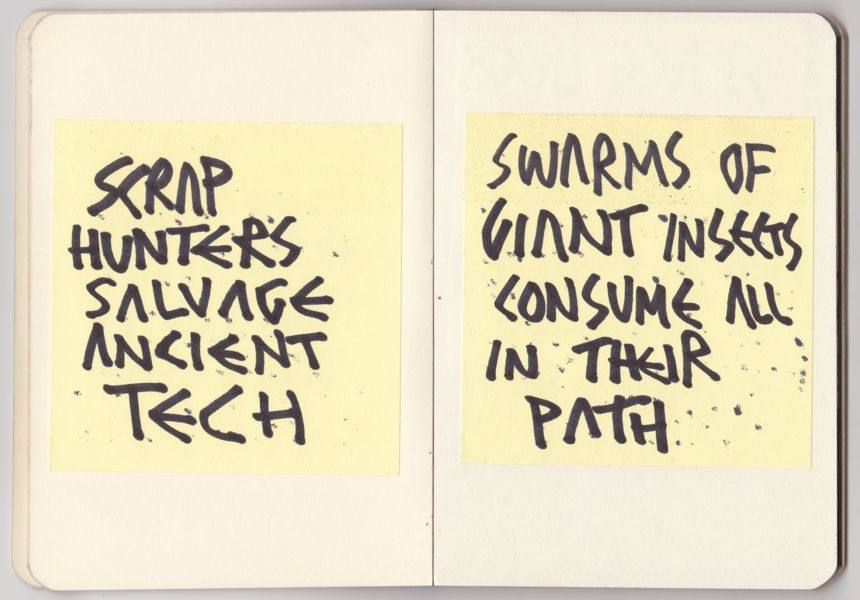 SCRAP
HUNTERS
SALVAGE
ANCIENT
TECH
SWARMS OF
GIANT INSECTS
CONSUME ALL
IN THEIR
PATH